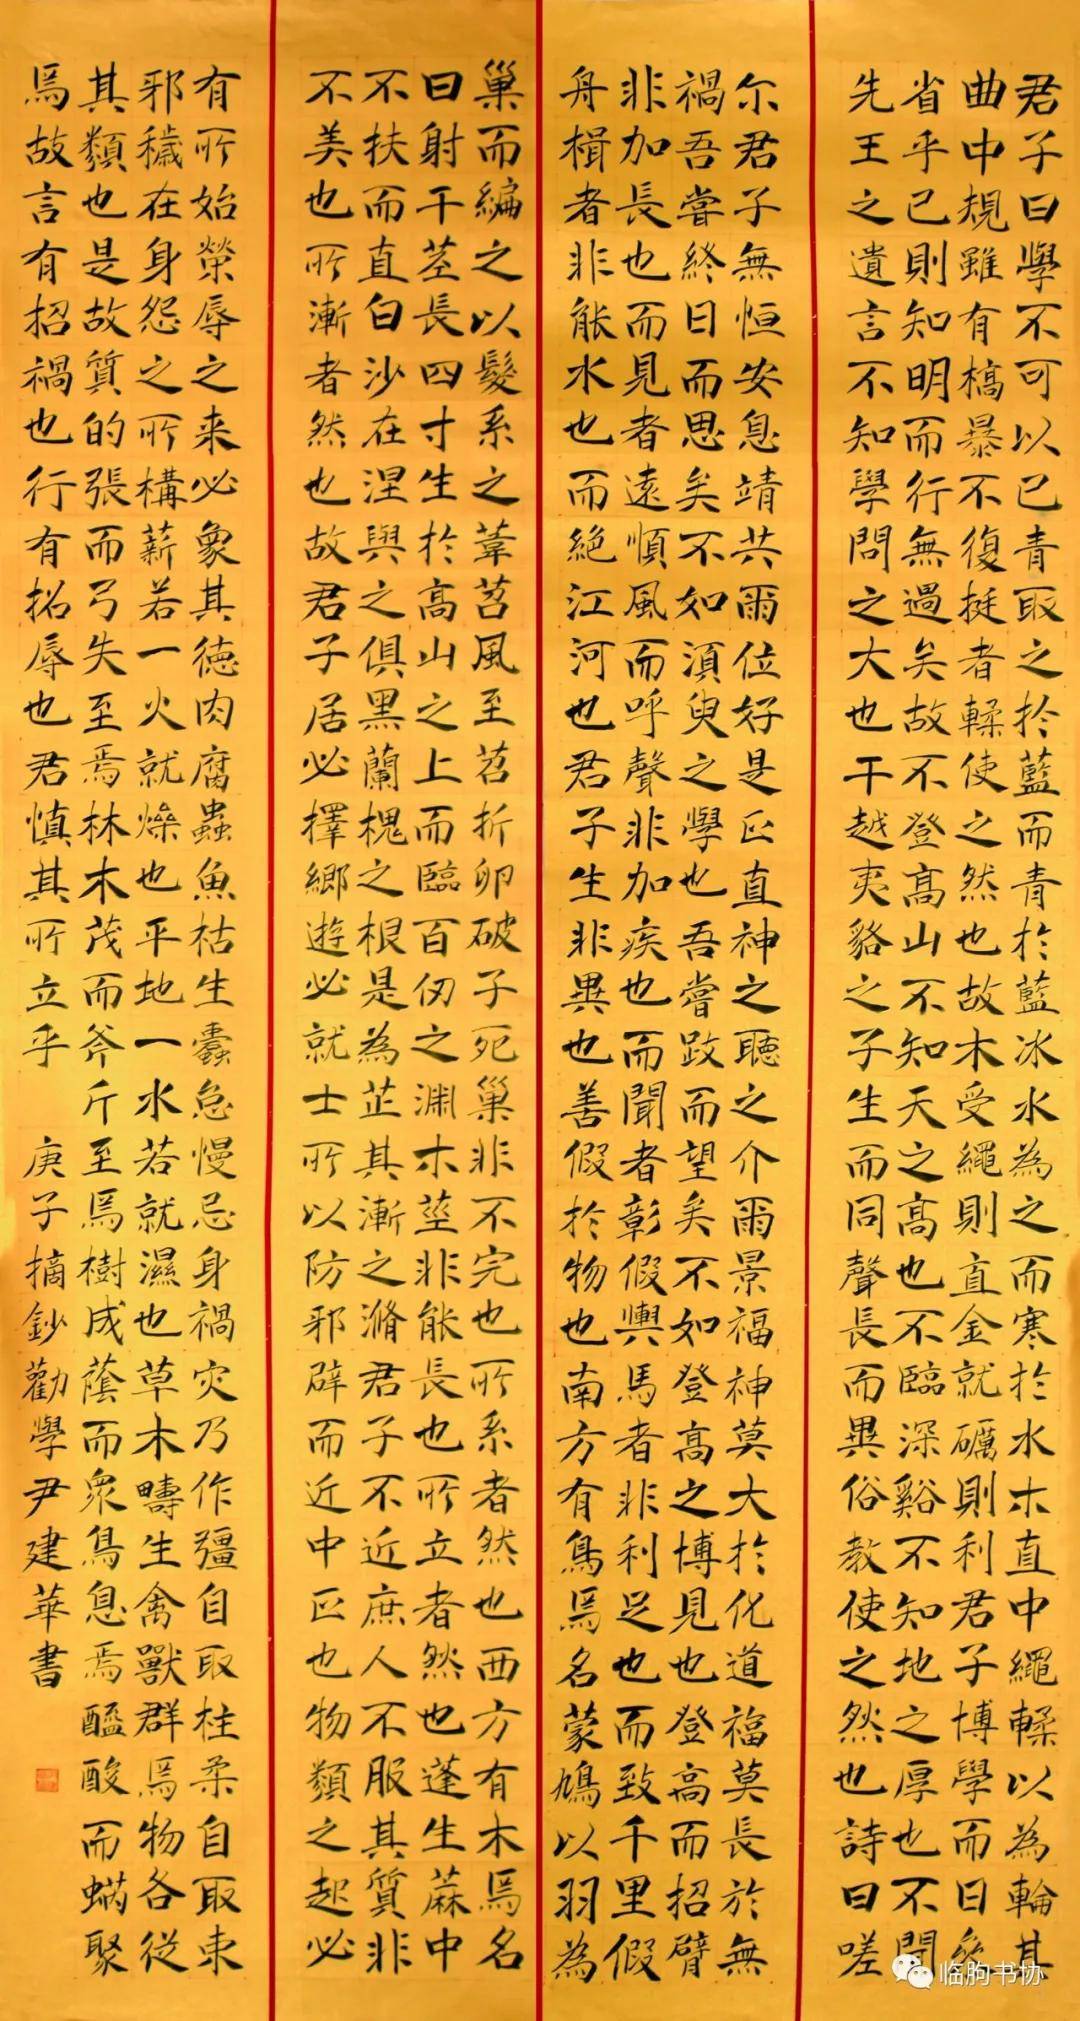 君子曰學不可以已青取之於藍而青於藍冰水為之而寒於水木直中繩輮以為輪其
曲中規雖有槁暴不復挺者輮使之然也故木受繩則直金就礪則利君子博學而日參
省乎己則知明而行無過矣故不登高山不知天之高也不臨深谿不知地之厚也不聞
先王之遺言不知學問之大也干越夷貉之子生而同聲長而異俗教使之然也詩曰嗟
尔君子無恒安息靖共爾位好是正直神之聽之介爾景福神莫大於化道福莫長於無
禍吾嘗終日而思矣不如須臾之學也吾嘗跂而望矣不如登高之博見也登高而招臂
非加長也而見者遠順風而呼聲非加疾也而聞者彰假輿馬者非利足也而致千里假
舟楫者非能水也而絕江河也君子生非異也善假於物也南方有鳥焉名蒙鳩以羽為
巢而編之以髮系之葦苕風至苕折卵破子死巢非不完也所系者然也西方有木焉名
曰射干莖長四寸生於高山之上而臨百仞之淵木莖非能長也所立者然也蓬生蔴中
不扶而直白沙在涅與之俱黑蘭槐之根是為芷其漸之滫君子不近庶人不服其質非
不美也所漸者然也故君子居必擇鄉遊必就士所以防邪辟而近中正也物類之起必
有所始榮辱之来必象其德肉腐蟲魚枯生蠹怠慢忘身禍灾乃作彊自取柱柔自取束
邪穢在身怨之所構薪若一火就燥也平地一水若就濕也草木疇生禽獸群焉物各從
其類也是故質的張而弓失至焉林木茂而斧斤至焉樹成蔭而衆鳥息焉醯酸而蜹聚
焉故言有招禍也行有招辱也君慎其所立乎 庚子摘鈔勸學尹建華書
临朐书协